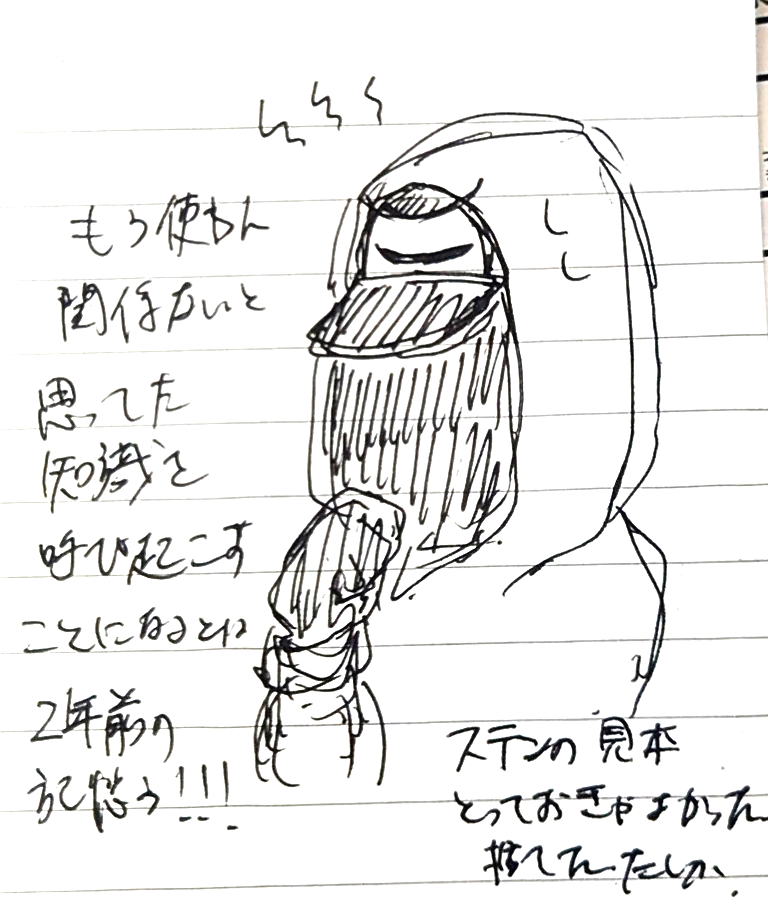 もう使わん
関係ないと
思ってた
知識を
呼び起こす
ことになるとは
2年前の
記憶う!!!
ステンの見本
とっておきゃよかった
捨てて